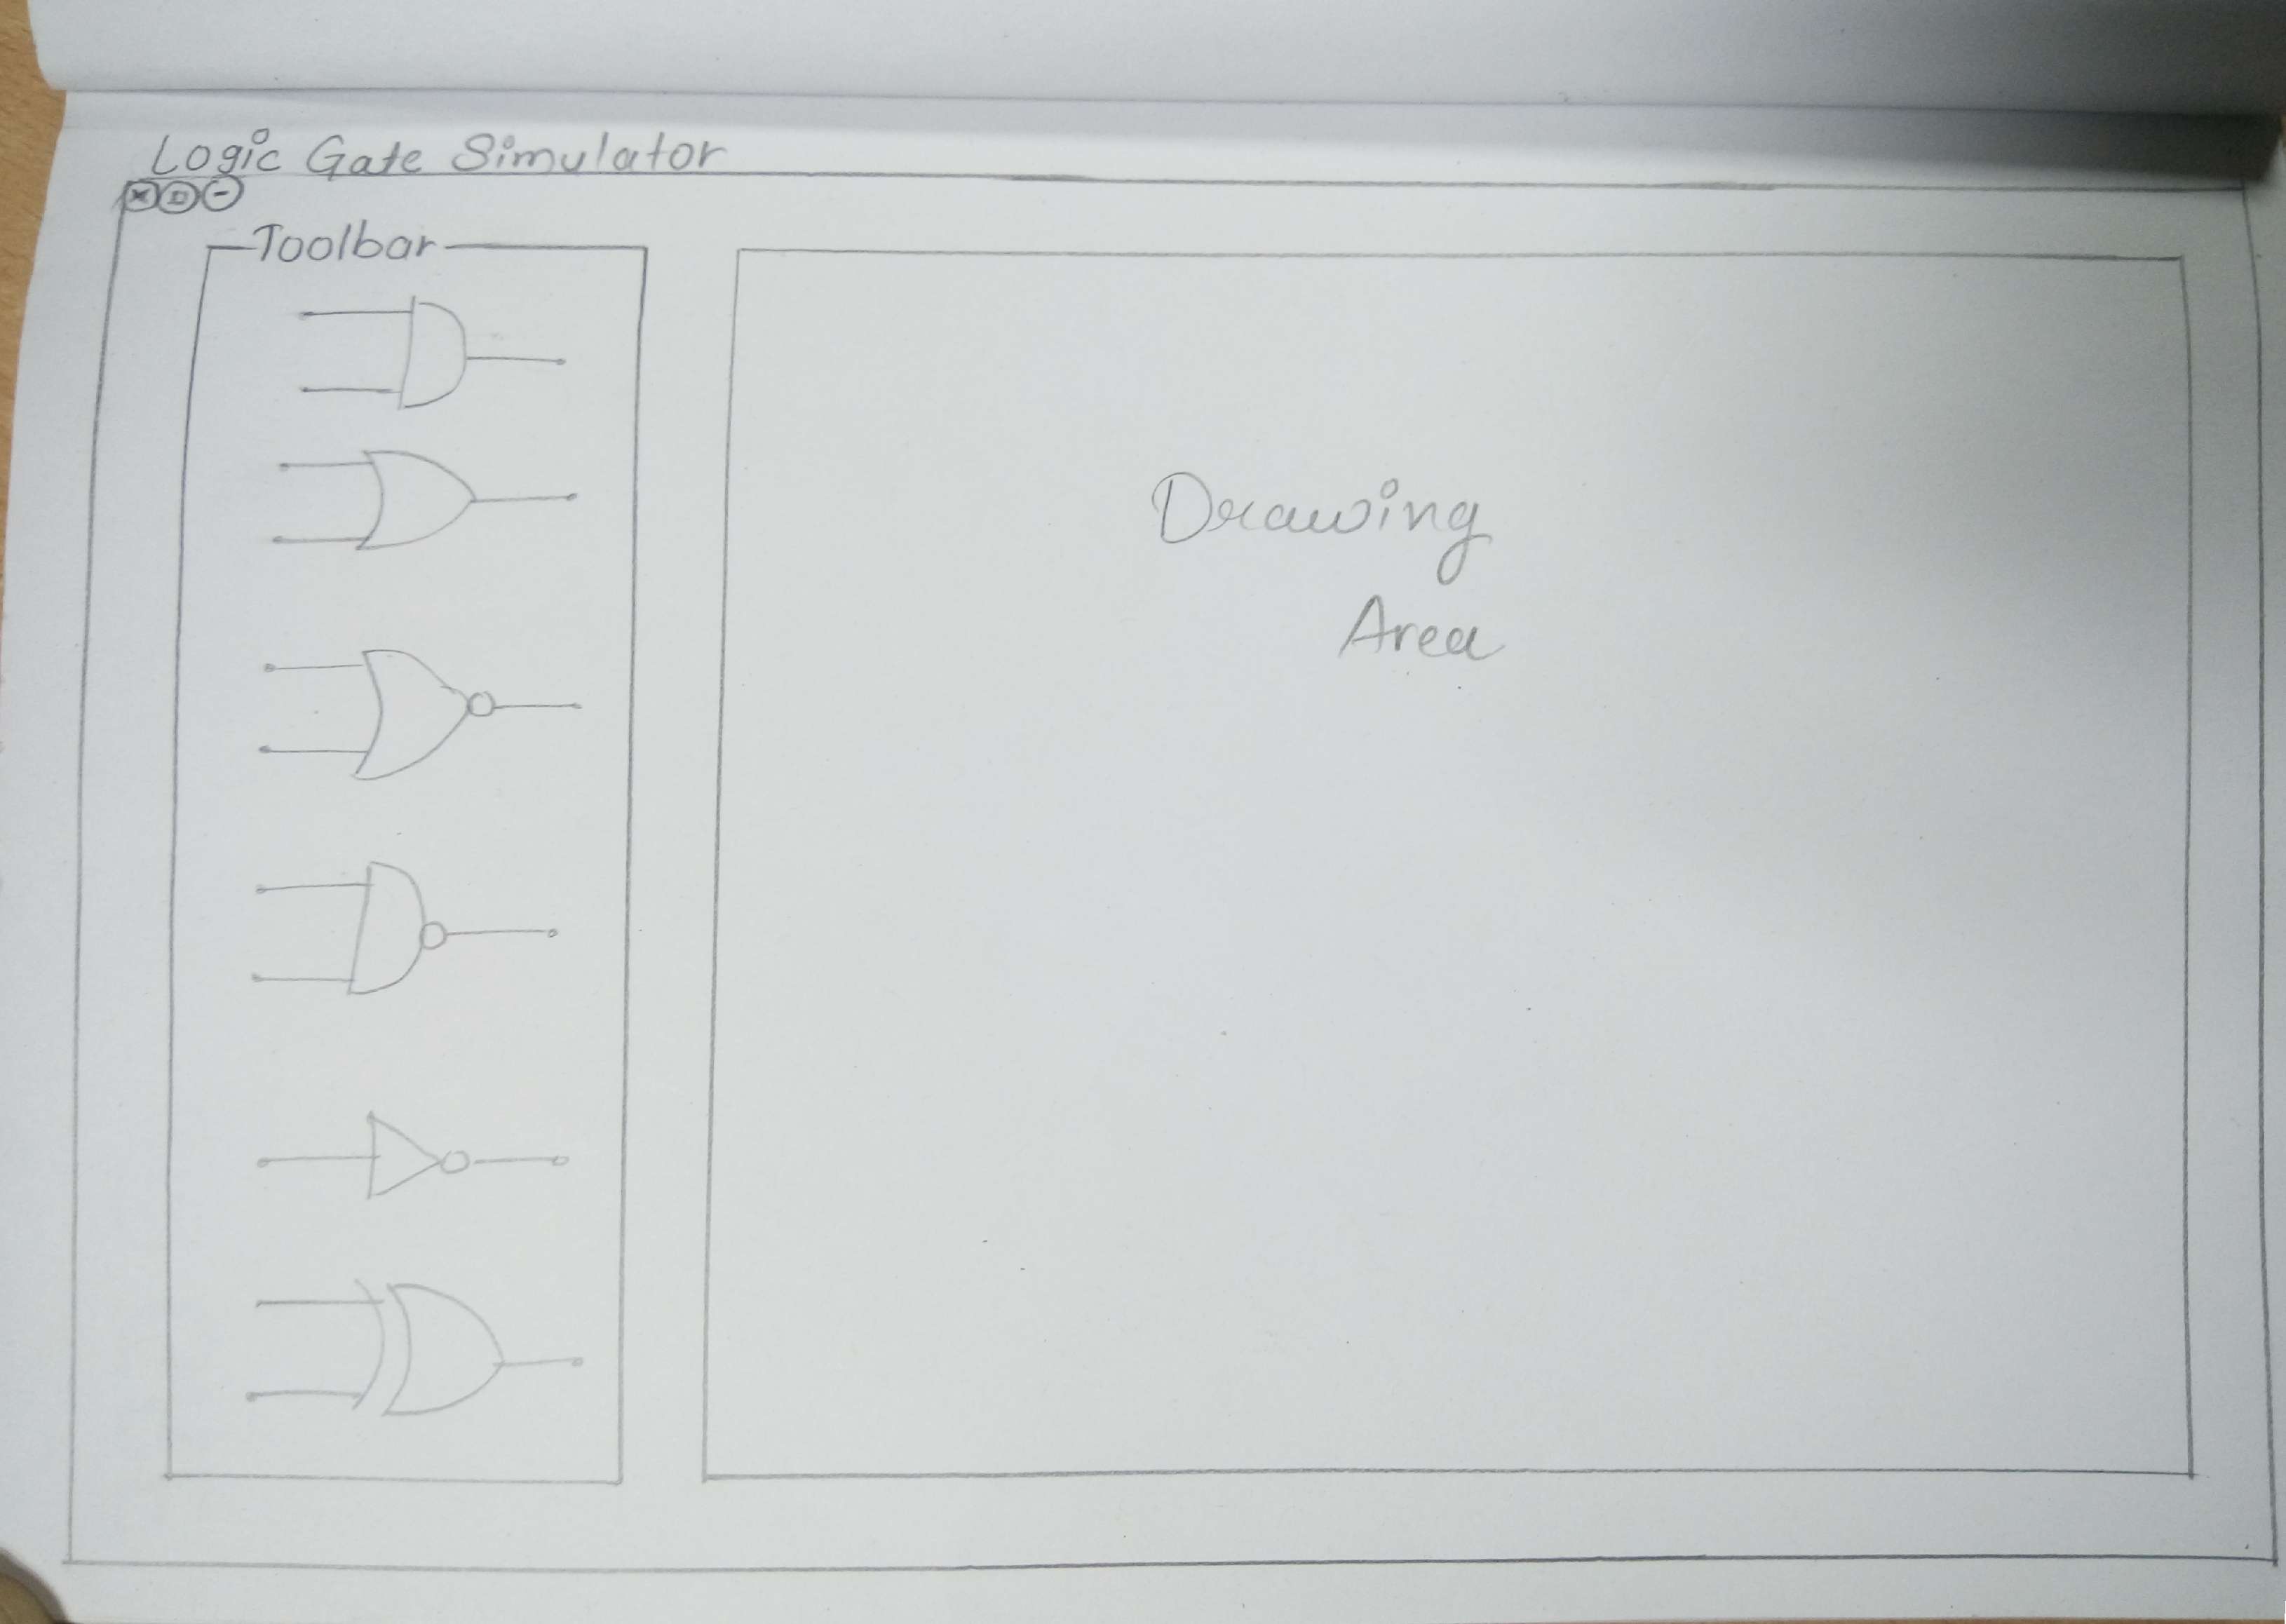 Logic Gate Simulator
Toolbar
Drawing
Area